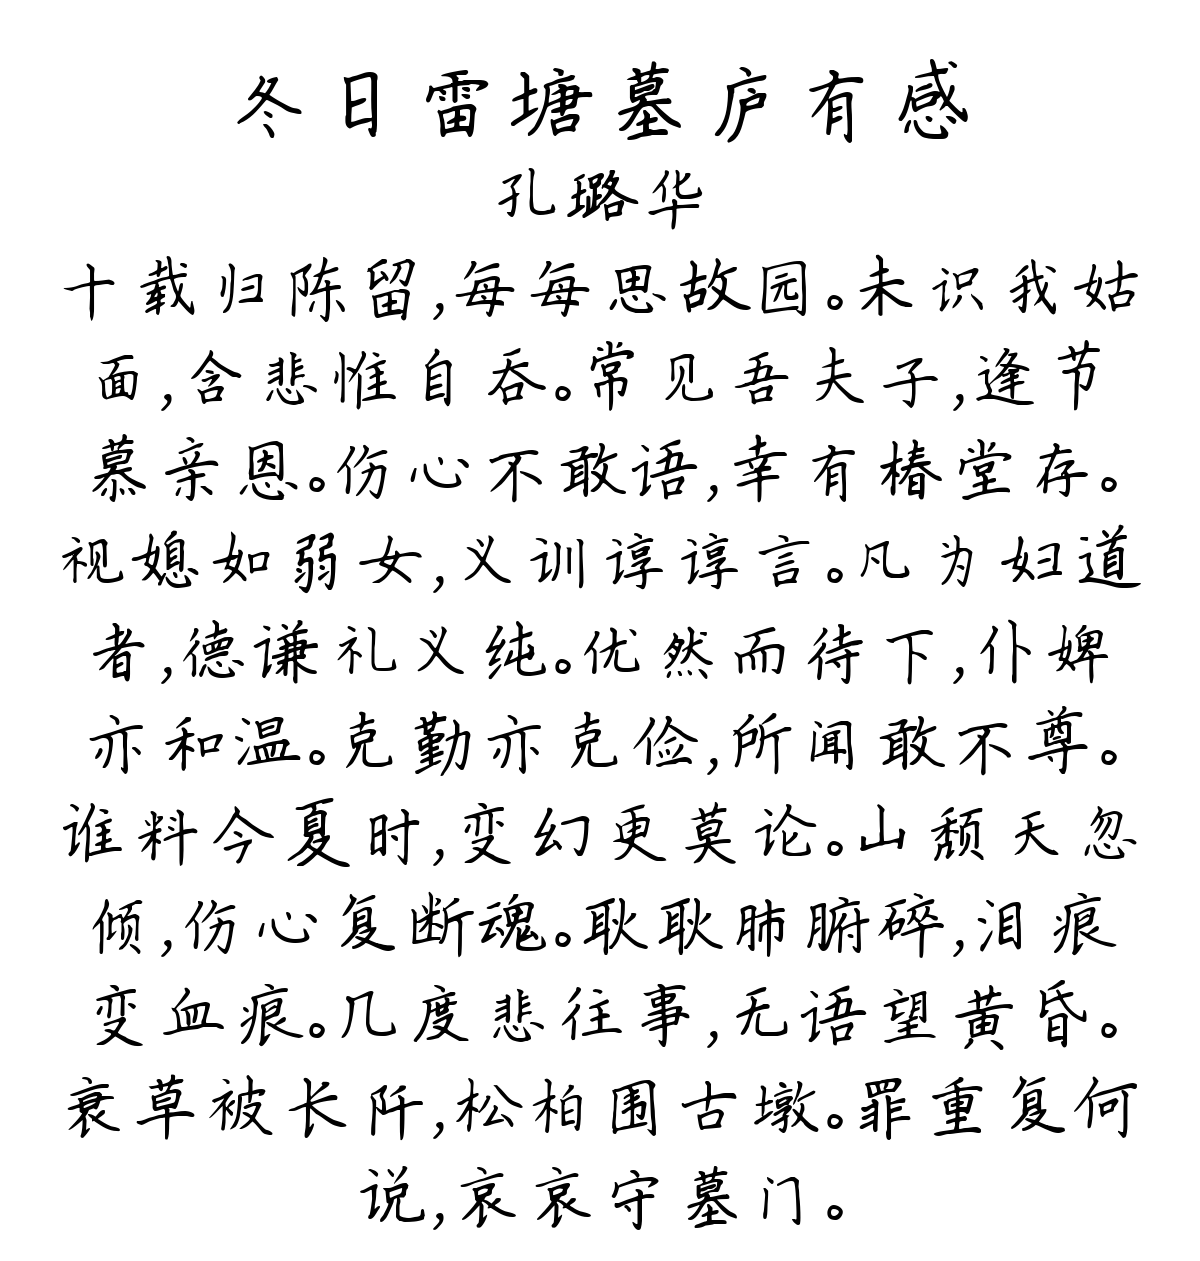 冬日雷塘墓庐有感
孔璐华
十载归陈留,每每思故园。未识我姑
面,含悲惟自吞。常见吾夫子,逢节
慕亲恩。伤心不敢语,幸有椿堂存。
视媳如弱女,义训谆谆言。凡为妇道
者,德谦礼义纯。优然而待下,仆婢
亦和温。克勤亦克俭,所闻敢不尊。
谁料今夏时,变幻更莫论。山颓天忽
倾,伤心复断魂。耿耿肺腑碎,泪痕
变血痕。几度悲往事,无语望黄昏。
衰草被长阡,松柏围古墩。罪重复何
说,哀哀守墓门。